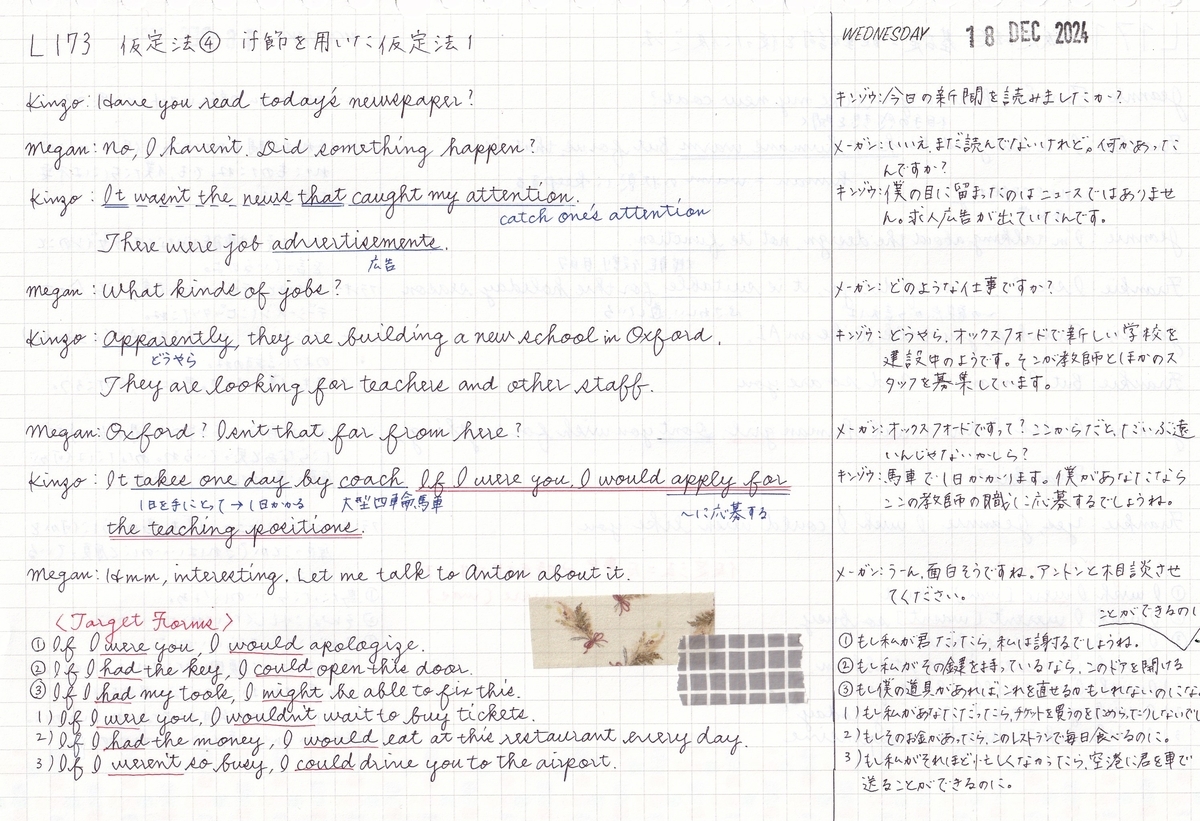 L173 仮定法④ if節を用いた仮定法1
WEDNESDAY 18 DEC 2024
Kinzo: Have you read today's newspaper?
Megan: No, I haven't. Did something happen?
Kinzo: It wasn't the news that caught my attention.
catch one's attention
There were job advertisements.
広告
Megan: What kinds of jobs?
Kinzo: Apparently, they are building a new school in Oxford.
どうやら
They are looking for teachers and other staff.
Megan: Oxford? Isn't that far from here?
Kinzo: It takes one day by coach. If I were you, I would apply for
1日を手にとって→1日かかる 大型四輪馬車 〜に応募する
the teaching positions.
Megan: Hmm, interesting. Let me talk to Anton about it.
<Target Forms>
① If I were you, I would apologize.
② If I had the key, I could open this door.
③ If I had my tools, I might be able to fix this.
1) If I were you, I wouldn't wait to buy tickets.
2) If I had the money, I would eat at this restaurant every day.
3) If I weren't so busy, I could drive you to the airport.
キンゾウ:今日の新聞を読みましたか?
メーガン:いいえ、まだ読んでないけれど。何かあった
んですか?
キンゾウ:僕の目に留まったのはニュースではありませ
ん。求人広告が出ていたんです。
メーガン:どのような仕事ですか?
キンゾウ:どうやら、オックスフォードで新しい学校を
建設中のようです。そこが教師とほかのス
タッフを募集しています。
メーガン:オックスフォードですって?ここからだと、だいぶ遠
いんじゃないかしら?
キンゾウ:馬車で1日かかります。僕があなたなら
ここの教師の職に応募するでしょうね。
メーガン:うーん、面白そうですね。アントンと相談させ
てください。
ことができるのに
①もし私が君だったら、私は謝るでしょうね。
②もし私がその鍵を持っているなら、このドアを開ける
③もし僕の道具があれば、これを直せるかもしれないのにな
1)もし私があなただったら、チケットを買うのをためらったりしないで
2)もしそのお金があったら、このレストランで毎日食べるのに。
3)もし私がそれほど忙しくなかったら、空港に君を車で
送ることができるのに。